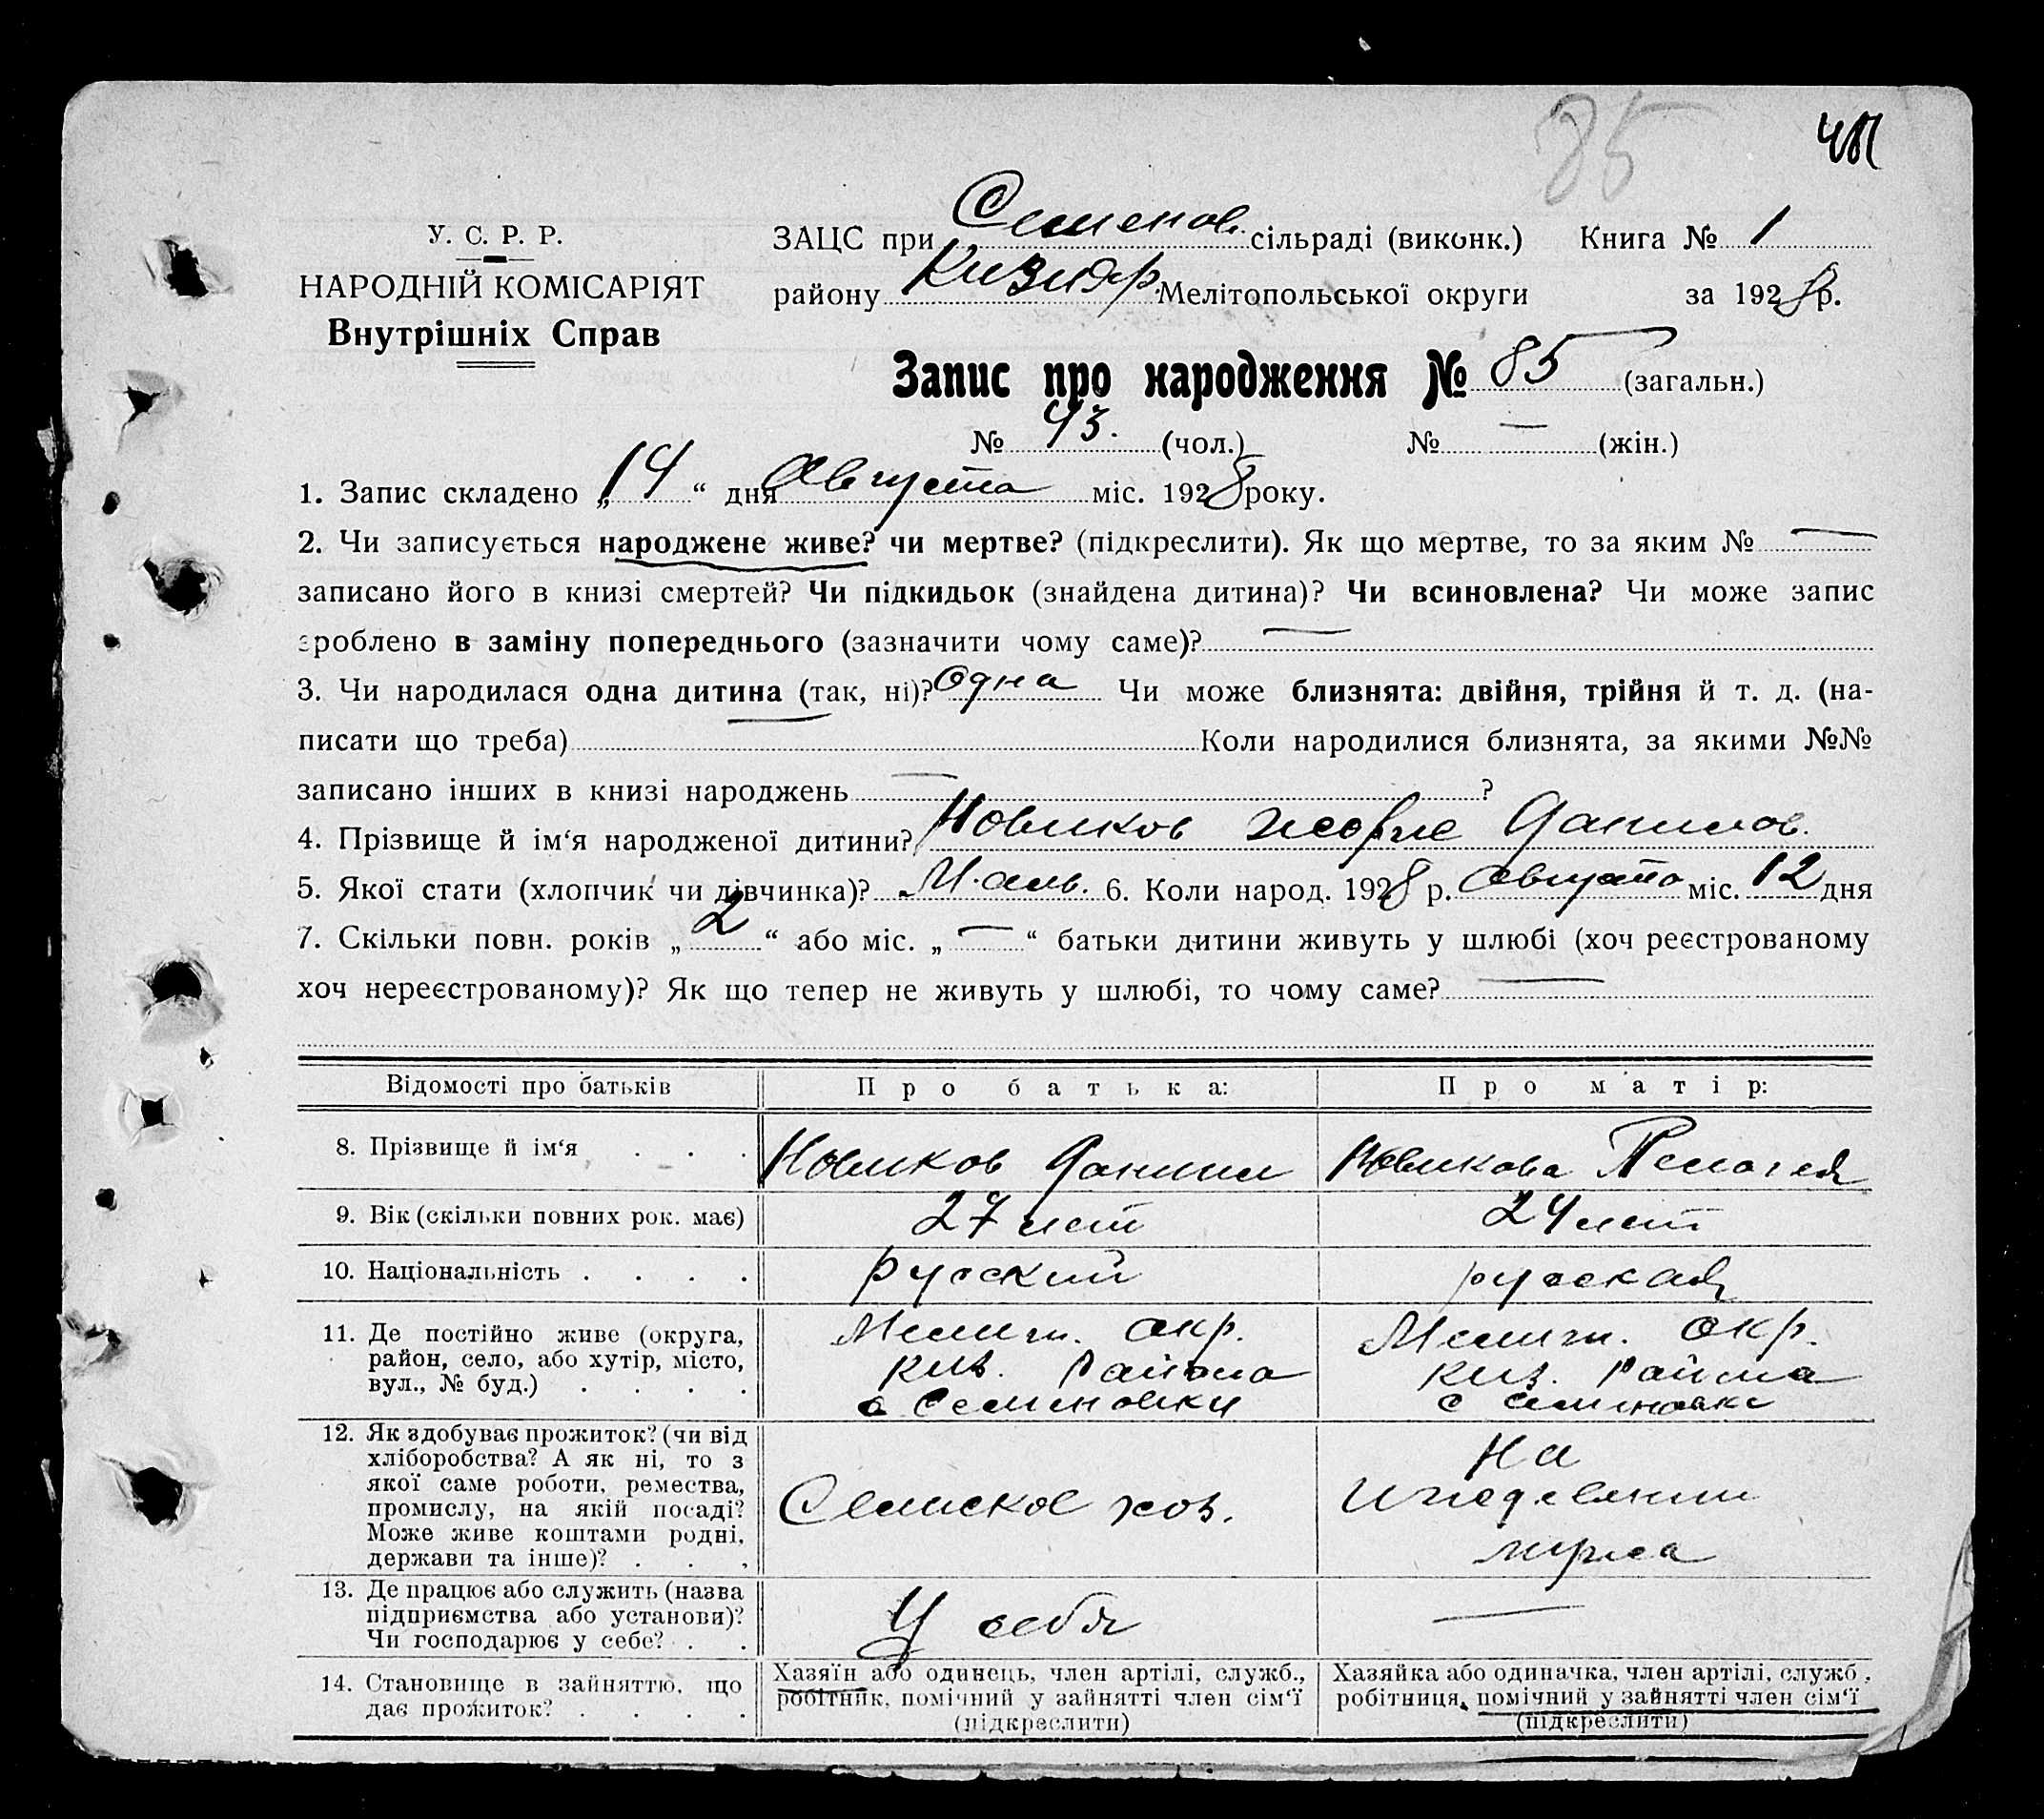 85
У. С. Р. Р.
НАРОДНІЙ КОМІСАРІЯТ
Внутрішніх Справ
ЗАЦС при Семенов. сільраді (виконк.) Книга № 1
району Кизияр Мелітопольської округи за 1928 р.
Запис про народження № 85 (загальн.)
№ 43. (чол.) № — (жін.)
1. Запис складено „14“ дня Августа міс. 1928 року.
2. Чи записується народжене живе? чи мертве? (підкреслити). Як що мертве, то за яким № —
записано його в книзі смертей? Чи підкидьок (знайдена дитина)? Чи всиновлена? Чи може запис
зроблено в заміну попереднього (зазначити чому саме)? —
3. Чи народилася одна дитина (так, ні)? Одна Чи може близнята: двійня, трійня й т. д. (на-
писати що треба) — Коли народилися близнята, за якими №№
записано інших в книзі народжень — ?
4. Прізвище й ім‘я народженої дитини? Новиков Жорже Данилов.
5. Якої стати (хлопчик чи дівчинка)? М-аль. 6. Коли народ. 1928 р. Августа міс. 12 дня
7. Скільки повн. років „2“ або міс. „—“ батьки дитини живуть у шлюбі (хоч реєстрованому
хоч нереєстрованому)? Як що тепер не живуть у шлюбі, то чому саме? —
Відомості про батьків Про батька: Про матір:
8. Прізвище й ім‘я . . . Новиков Данили Новикова Пелагея
9. Вік (скільки повних рок. має) 27 лет 24 лет
10. Національність . . . . русский руская
11. Де постійно живе (округа, Мелит. окр. Мелит. окр.
район, село, або хутір, місто, киз. района киз. района
вул., № буд.) . . . . с Семиновки с семиновке
12. Як здобуває прожиток? (чи від
хліборобства? А як ні, то з
якої саме роботи, ремества,
промислу, на якій посаді?
Може живе коштами родні,
держави та інше)? . . .
Селиское хоз.
На
иждевении
мужа
13. Де працює або служить (назва
підприємства або установи)?
Чи господарює у себе? . .
У себя —
14. Становище в зайняттю, що
дає прожиток? . . . .
Хазяїн або одинець, член артілі, служб.,
робітник, помічний у зайнятті член сім‘ї
(підкреслити)
Хазяйка або одиначка, член артілі, служб.,
робітниця, помічний у зайнятті член сім‘ї
(підкреслити)